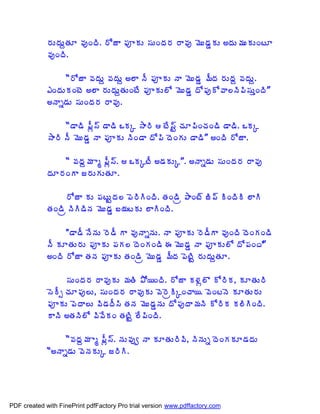 రుద్దుతూ వుంది. రోజా పూకు సుందర రావు మొడ్డకు అదుముకుంటూ
వుంది.
"రోజా వద్దు వద్దు అలా నీ పూకు నా మొడ్డ మీద రుద్ద వద్దు.
ఎందుకంటె అలా రుద్దుతుంటే పూకులో మొడ్డ దోపుకోవాలనిపిస్తుంది"
అన్నాడు సుందర రావు.
"డాడి ప్లీస్ డాడి ఒక్క సారి ఆ టేస్ట్ చూపించండి డాడి. ఒక్క
సారి నీ మొడ్డ నా పూకు నిండా దోపి దెంగు డాడి" అంది రోజా.
" వద్దమ్మా ప్లీస్. ఆ ఒక్కటీ అడక్కు". అన్నాడు సుందర రావు
దూరంగా జరుగుతూ.
రోజా కు పట్టుదల పెరిగింది. తండ్రి పాంట్ జిప్ కిందికి లాగి
తండ్రి నిగిడిన మొడ్డ బయటకు లాగింది.
"డాడీ నేను రెడీ గా వున్నాను. నా పూకు రెడీగా వుంది దెంగండి
నీ కూతురు పూకు పగల దెంగండి ఈ మొడ్డ నా పూకులో దోపండ"
అంది రోజా తన పూకు తండ్రి మొడ్డ మీద పెట్టి రుద్దుతూ.
సుందర రావుకు మతి పోయింది. రోజా కళ్లలో కోరిక, కూతురి
సెక్సీ చూపులు, సుందర రావుకు వెర్రెక్కించాయి. వెంటనె కూతురు
పూకు పెదాలు విడదీసి తన మొడ్డను దోపుదామని కోరిక కలిగింది.
కాని అతనిలో వివేకం తట్టి లేపింది.
"వద్దమ్మా ప్లీస్. నువ్వు నా కూతురివి, నిన్ను దెంగకూడదు
"అన్నాడు వెనక్కు జరిగి.
PDF created with FinePrint pdfFactory Pro trial version www.pdffactory.com